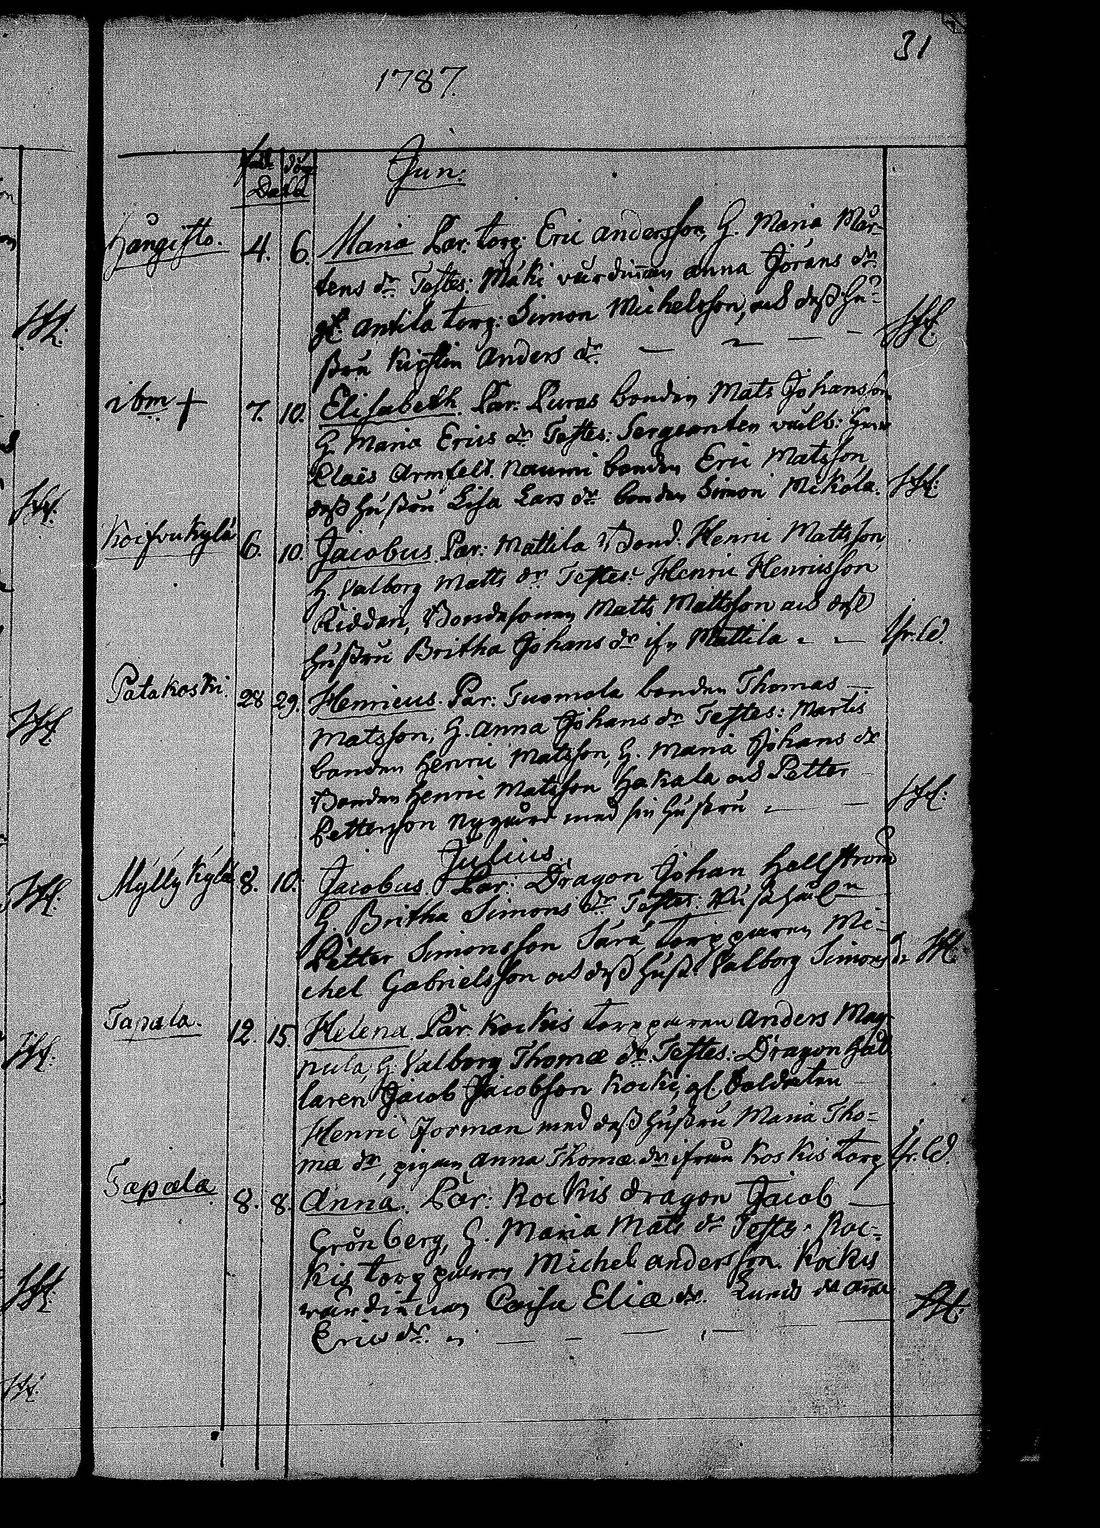 31
1787.
Jun:
Data
Hångisto. 4. 6. Maria Par. torp: Eric Andersson, G. Maria Mår-
tens dr Testes: Mäki värdinnan Anna Jörans dr
gl. Antila torp: Simon Michelsson, och dess hu-
stru Kirstin Anders dr
ibm + 7. 10. Elisabeth. Par. Puras bonden Mats Johansson
G. Maria Erics dr Testes: Sergeanten välb: Herr
Claës Armfelt. Naumi bonden Eric Matsson
dess hustru Lisa Lars dr bonden Simon Mikola.
Koifvukylä 6. 10. Jacobus. Par: Mattila Bond. Henric Mattsson,
G. Valborg Matts dr Testes: Henric Henricsson
Ridden, Bondesonen Matts Mattsson och dess
hustru Britha Johans dr ifr. Mattila.
Patakoski. 28 29. Henricus. Par: Tuomola bonden Thomas
Matsson, G. Anna Johans dr Testes: Martis
bonden Henric Matsson, G. Maria Johans dr
Bonden Henric Matsson Hakala och Petter
Pettersson Nygård med sin hustru
Julius.
Mÿllÿkylä 8. 10. Jacobus Par: Dragon Johan Hellström
G. Britha Simons dr Testes:
Petter Simonsson Särä, torpparen Mi-
chel Gabrielsson och dess hust: Valborg Simons dr
Tapala. 12. 15. Helena. Par. Kockis torpparen Anders Mag-
nula, G. Valborg Thomæ dr. Testes. Dragon hål-
laren Jacob Jacobsson Kocki, gl. Soldaten
Henric Forman med dess hustru Maria Tho-
mæ dr, pigan Anna Thomæ dr ifrån Koskis torp
Tapala 8. 8. Anna. Par: Kockis dragon Jacob
Grönberg, G. Maria Mats dr Testes. Koc-
kis torpparen Michel Andersson. Kockis
värdinnan Caisa Eliæ dr. dr Anna
Erics dr.